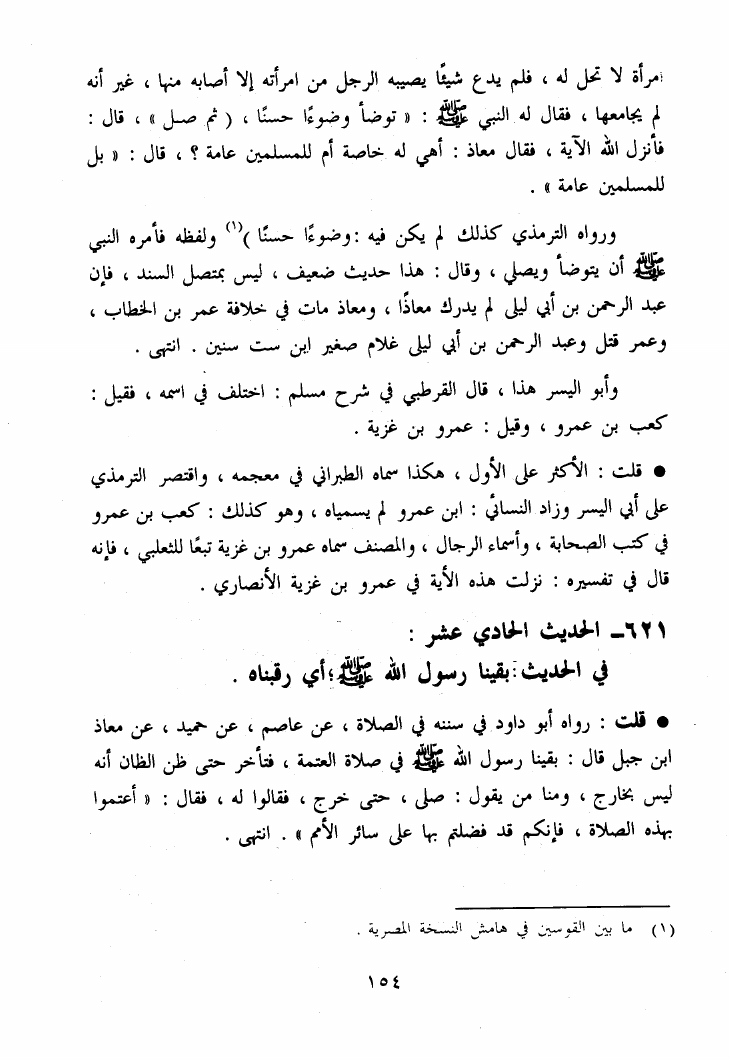 امرأة لا تحل له ، فلم يدع شيئًا يصيبه الرجل من امرأته إلا أصابه منها ، غير أنه
لم يجامعها ، فقال له النبي ﷺ : « توضأ وضوءًا حسنًا ، ( ثم صل » ، قال :
فأنزل الله الآية ، فقال معاذ : أهي له خاصة أم للمسلمين عامة ؟ ، قال : « بل
للمسلمين عامة » .
ورواه الترمذي كذلك لم يكن فيه : وضوءًا حسنًا )(١) ولفظه فأمره النبي
ﷺ أن يتوضأ ويصلي ، وقال : هذا حديث ضعيف ، ليس بمتصل السند ، فإن
عبد الرحمن بن أبي ليلى لم يدرك معاذًا ، ومعاذ مات في خلافة عمر بن الخطاب ،
وعمر قتل وعبد الرحمن بن أبي ليلى غلام صغير ابن ست سنين . انتهى .
وأبو اليسر هذا ، قال القرطبي في شرح مسلم : اختلف في اسمه ، فقيل :
كعب بن عمرو ، وقيل : عمرو بن غزية .
● قلت : الأكثر على الأول ، هكذا سماه الطبراني في معجمه ، واقتصر الترمذي
على أبي اليسر وزاد النسائي : ابن عمرو لم يسمياه ، وهو كذلك : كعب بن عمرو
في كتب الصحابة ، وأسماء الرجال ، والمصنف سماه عمرو بن غزية تبعًا للثعلبي ، فإنه
قال في تفسيره : نزلت هذه الأية في عمرو بن غزية الأنصاري .
٦٢١ــ الحديث الحادي عشر :
في الحديث : بقينا رسول الله ﷺ ؛ أي رقبناه .
● قلت : رواه أبو داود في سننه في الصلاة ، عن عاصم ، عن حميد ، عن معاذ
ابن جبل قال : بقينا رسول الله ﷺ في صلاة العتمة ، فتأخر حتى ظن الظان أنه
ليس بخارج ، ومنا من يقول : صلى ، حتى خرج ، فقالوا له ، فقال : « أعتموا
بهذه الصلاة ، فإنكم قد فضلتم بها على سائر الأمم » . انتهى .
(١) ما بين القوسين في هامش النسخة المصرية .
١٥٤